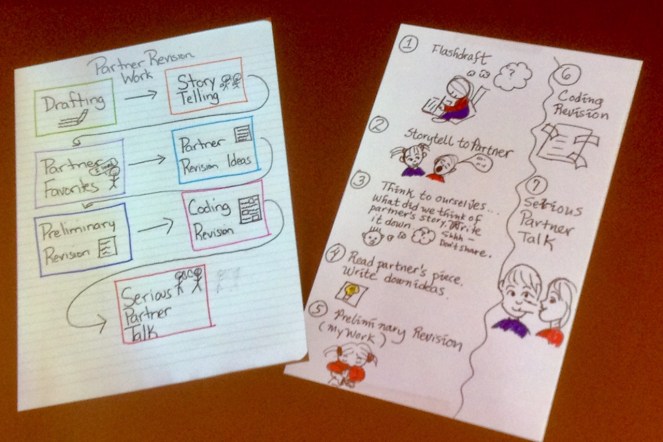 Partner Revision
Work
Drafting
Story
Telling
Partner
Favorites
Partner
Revision Ideas
Preliminary
Revision
Coding
Revision
Serious
Partner
Talk
1 Flashdraft
?
2 Storytell to Partner
3 Think to ourselves...
What did we think of
partner's story. Write
it down.
Shhh -
Don't share.
?
4 Read partner's piece.
Write down ideas.
5 Preliminary Revision
(My Work)
6
Coding
Revision
7
Serious
Partner
Talk